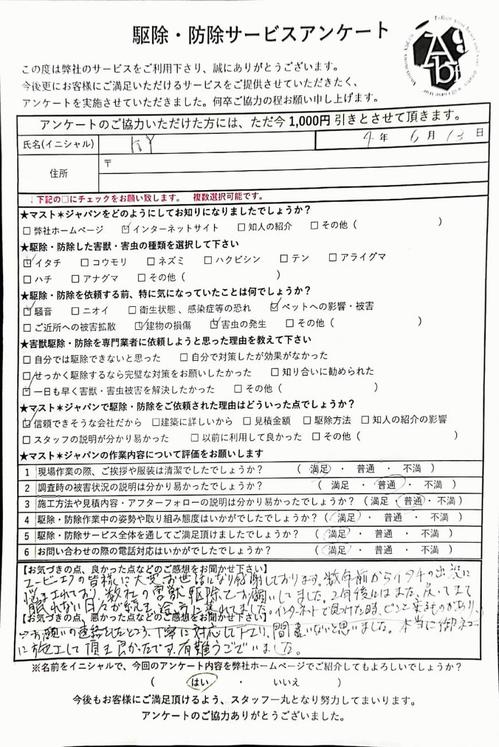 駆除・防除サービスアンケート
この度は弊社のサービスをご利用下さり、誠にありがとうございます。
今後更にお客様にご満足いただけるサービスをご提供させていただきたく、
アンケートを実施させていただきました。何卒ご協力の程お願い申し上げます。
アンケートのご協力いただけた方には、ただ今1,000円引きとさせて頂きます。
氏名(イニシャル) KY 4年 6月 13日
住所 〒
↓下記の□にチェックをお願い致します。 複数選択可能です。
★マスト★ジャパンをどのようにしてお知りになりましたでしょうか?
□弊社ホームページ ☑インターネットサイト □知人の紹介 □その他( )
★駆除・防除した害獣・害虫の種類を選択して下さい
☑イタチ □コウモリ □ネズミ □ハクビシン □テン □アライグマ
□ハチ □アナグマ □その他( )
★駆除・防除を依頼する前、特に気になっていたことは何でしょうか?
☑騒音 □ニオイ □衛生状態、感染症等の恐れ ☑ペットへの影響・被害
□ご近所への被害拡散 ☑建物の損傷 ☑害虫の発生 □その他( )
★害獣駆除・防除を専門業者に依頼しようと思った理由を教えて下さい
□自分では駆除できないと思った □自分で対策したが効果がなかった
☑せっかく駆除するなら完璧な対策をお願いしたかった □知り合いに勧められた
☑一日も早く害獣・害虫被害を解決したかった □その他( )
★マスト★ジャパンで駆除・防除をご依頼された理由はどういった点でしょうか?
☑信頼できそうな会社だから □建築に詳しいから □見積金額 □駆除方法 □知人の紹介の影響
□スタッフの説明が分かり易かった □以前に利用して良かった □その他( )
★マスト★ジャパンの作業内容について評価をお願いします
1 現場作業の際、ご挨拶や服装は清潔でしたでしょうか? (満足・普通・不満)
2 調査時の被害状況の説明は分かり易かったでしょうか? (満足・普通・不満)
3 施工方法や見積内容・アフターフォローの説明は分かり易かったでしょうか?(満足・普通・不満)
4 駆除・防除作業中の姿勢や取り組み態度はいかがでしたでしょうか? (満足・普通・不満)
5 駆除・防除サービス全体を通してご満足頂けましたでしょうか? (満足・普通・不満)
6 お問い合わせの際の電話対応はいかがでしたでしょうか? (満足・普通・不満)
【お気づきの点、良かった点などのご感想をお聞かせ下さい】
エービーエフの皆様に大変お世話になり感謝しております。数年前からイタチの出没に
悩まされており、数社の害獣駆除でお願いしてました。2年後にはまた戻ってきて
眠れない日々が続き
【お気づきの点、悪かった点などのご感想をお聞かせ下さい】
丁寧に対応して下さり、間違いないと思いました。本当に
に施工して頂き良かったです。有難うございました。
※名前をイニシャルで、今回のアンケート内容を弊社ホームページでご紹介してもよろしいでしょうか?
( はい ・ いいえ )
今後もお客様にご満足頂けるよう、スタッフ一丸となり努力してまいります。
アンケートのご協力ありがとうございました。